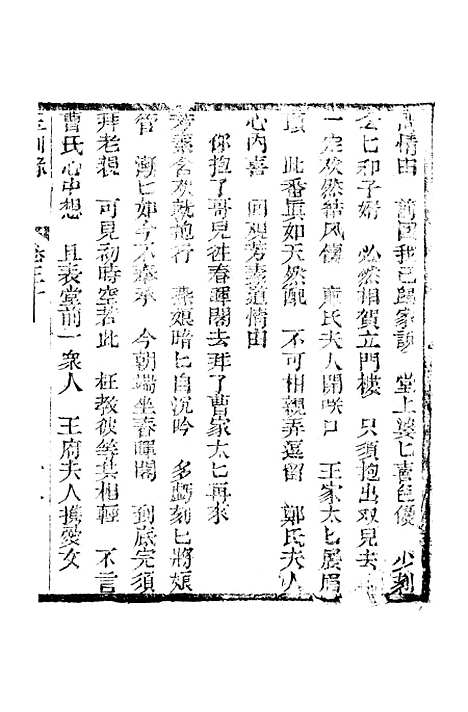 情由　前回我已歸家說　堂上婆匕喜色優　少刻
公匕和子婿　必然相賀立門樓　只須抱出双兒去
一定欢然結风儔　　氏夫人開咲口　王家太匕展眉
頭　此番真如天然配　不可相親弄逗留　鄭氏夫人
心内喜　回覌芳素道情由
你抱了哥兒往春暉閣去拜了曹家太匕再來
芳素含欢就抱行　燕娘暗匕自沉吟　多虧刻匕將娘
管　漸匕如今不奉承　今朝端坐春暉閣　到底完須
拜老親　可見初時空若此　枉教彼等共相輕　不言
曹氏心中想　且表堂前一衆人　王府夫人携愛女